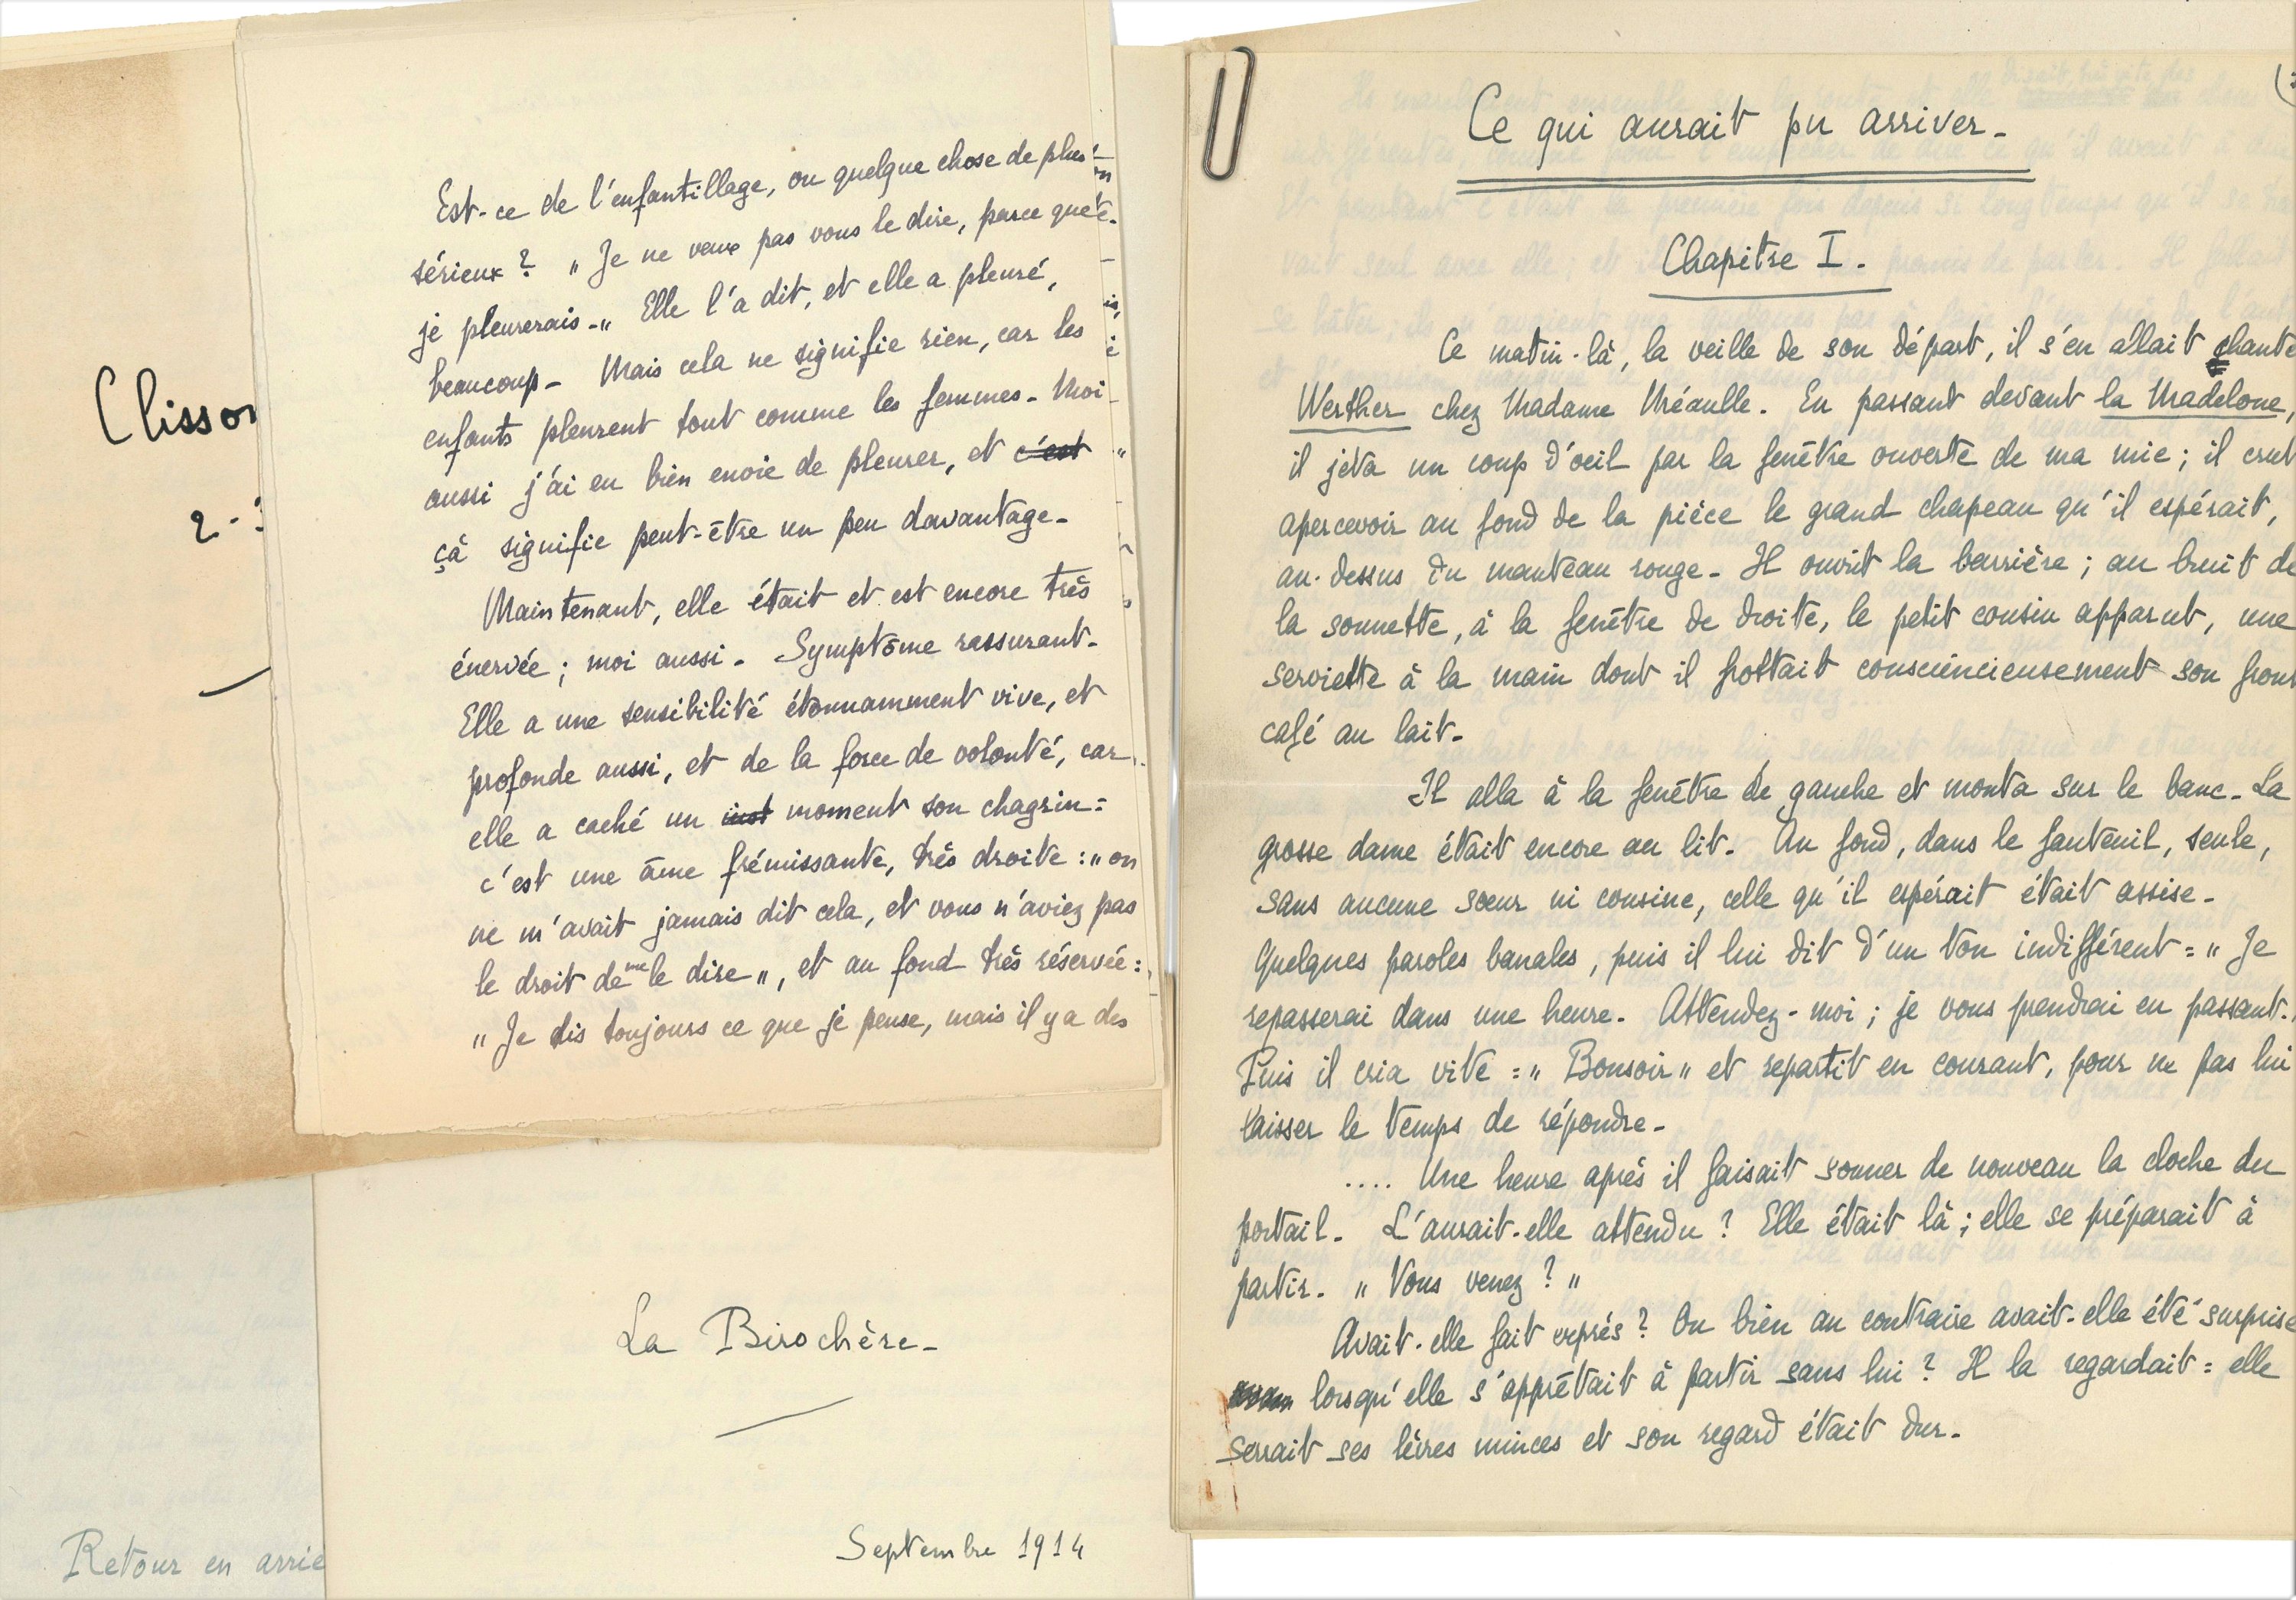 Clisson
2-
Est-ce de l'enfantillage, ou quelque chose de plus
sérieux ? " Je ne veux pas vous le dire, parce que
je pleurerais-" Elle l'a dit, et elle a pleuré,
beaucoup- Mais cela ne signifie rien, car les
enfants pleurent tout comme les femmes- Moi
aussi j'ai eu bien envie de pleurer, et c'est
çà signifie peut-être un peu davantage-
Maintenant, elle était et est encore très
énervée ; moi aussi- Symptôme rassurant-
Elle a une sensibilité étonnamment vive, et
profonde aussi, et de la force de volonté, car
elle a caché un inst moment son chagrin :
c'est une âme frémissante, très droite : " on
ne m'avait jamais dit cela, et vous n'aviez pas
le droit de me le dire ", et au fond très réservée :
" Je dis toujours ce que je pense, mais il y a des
La Birochère-
Septembre 1914
Retour en arriè
Ce qui aurait pu arriver-
Chapitre I-
Ce matin-là, la veille de son départ, il s'en allait chante
Werther chez Madame Méaulle. En passant devant la Madelone,
il jeta un coup d'oeil par la fenêtre ouverte de ma mie ; il crut
apercevoir au fond de la pièce le grand chapeau qu'il espérait,
au-dessus du manteau rouge- Il ouvrit la barrière ; au bruit de
la sonnette, à la fenêtre de droite, le petit cousin apparut, une
serviette à la main dont il frottait consciencieusement son front
café au lait-
Il alla à la fenêtre de gauche et monta sur le banc- La
grosse dame était encore au lit- Au fond, dans le fauteuil, seule,
sans aucune soeur ni cousine, celle qu'il espérait était assise-
Quelques paroles banales, puis il lui dit d'un ton indifférent : " Je
repasserai dans une heure- Attendez-moi ; je vous prendrai en passant.
Puis il cria vite : " Bonsoir " et repartit en courant, pour ne pas lui
laisser le temps de répondre-
.... Une heure après il faisait sonner de nouveau la cloche du
portail- L'aurait-elle attendu ? Elle était là ; elle se préparait à
partir- " Vous venez ? "
Avait-elle fait exprès ? Ou bien au contraire avait-elle été surprise
lorsqu'elle s'apprêtait à partir sans lui ? Il la regardait : elle
serrait ses lèvres minces et son regard était dur-